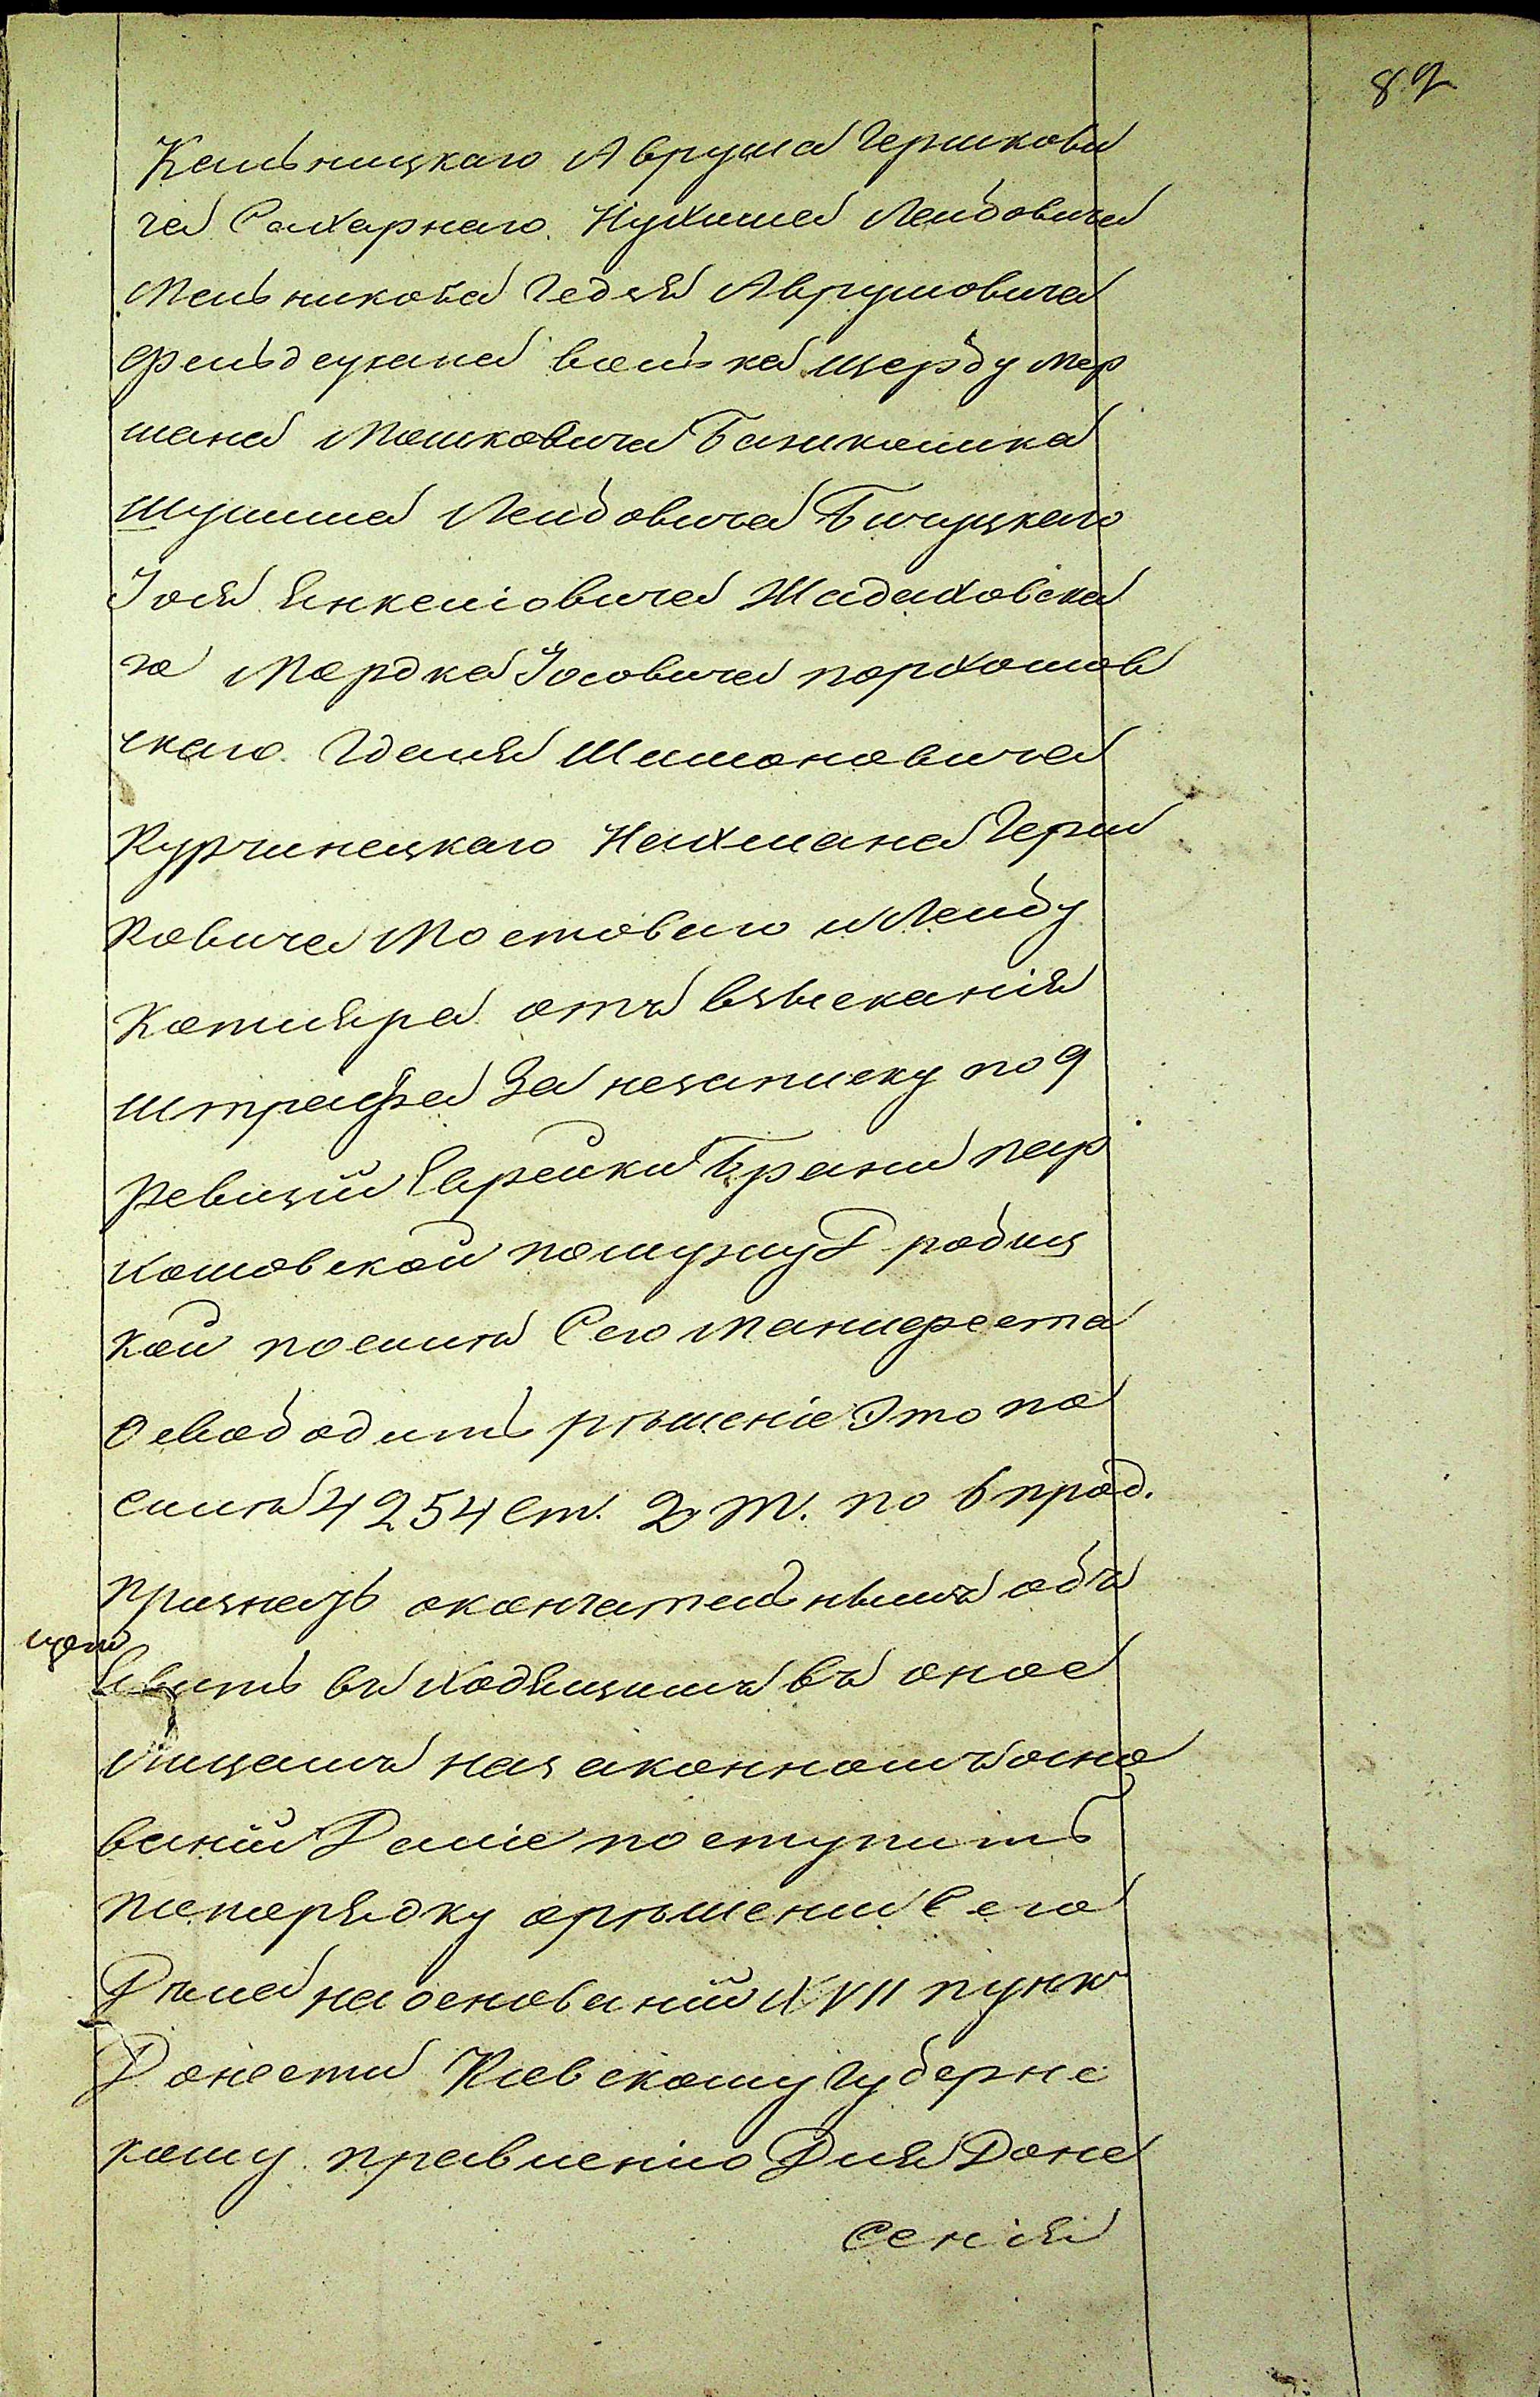 82
Кальницкаго Авруша Гершкови
ча Сахарнаго Нухима Лейбовича
Мельникова Гедзя Аврумовича
Фельдсухана Волька Щербу мер
шана Мошковича Баникалика
Шулима Лейбовича Бичуцкаго
Іося Янкеліовича Шадаховска
го Мордка Іосовича пархомов
скаго Гдаля Шимоновича
Курчинецкаго Нахмана Герш
ковича Мостоваго и Лейбу
Котляра отъ взысканія
штрафа За незаписку по 9
ревизіи Еврейки Брани пар
хомовской помужу Гробиц
кой посилѣ Сего манифеста
Освободить рѣшеніе Это по
силѣ 4254 ст. 2 т. по 6 прод.
признавъ окончательнымъ объ
цем
явить входящимъ въ оное
лицамъ назаконномъ осно
ваніи Даліе поступить
попорядку орѣшеніи Сего
Дѣла наоснованіи XVII пунк
Донести Киевскому губернс
кому правленію Для Доне
сенія